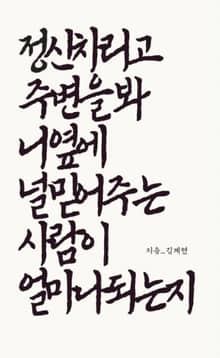 정신차리고
주변을봐
니옆에
널믿어주는
사람이
얼마나되는지
지음_김제현